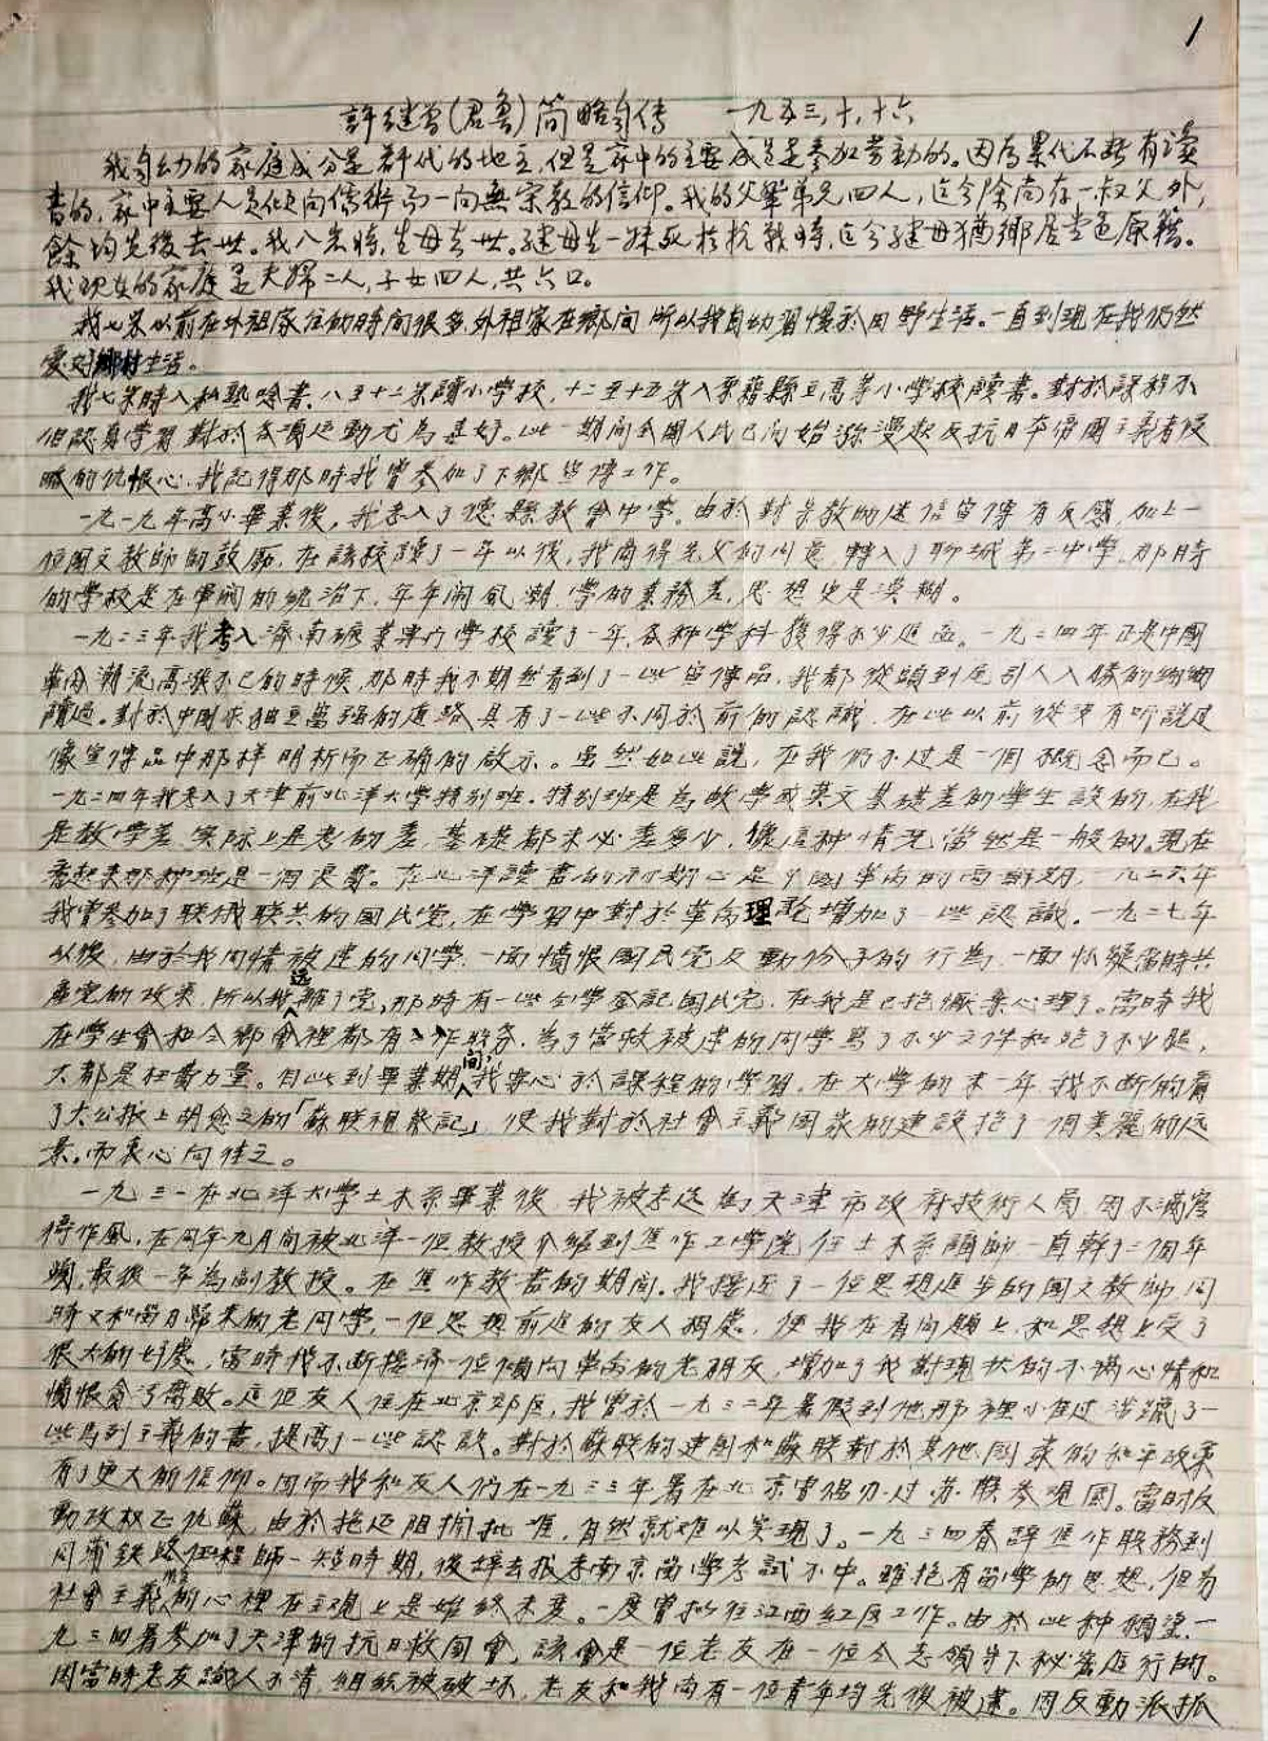 1
許继曾(君魯)简略自传 一九五三,十,十六
我自幼的家庭成分是群代的地主,但是家中的主要成员是参加劳動的。因為累代不断有读
書的,家中主要人员倾向儒術而一向無宗教的信仰。我的父輩弟兄四人,迄今除尚存一叔父外,
餘均先後去世。我八岁時,生母去世。继母生一妹死於抗戰時,迄今继母猶鄉居堂邑原籍。
我现在的家庭是夫婦二人,子女四人,共六口。
我七岁以前在外祖家住的時间很多,外祖家在鄉间所以我自幼習慣於田野生活。一直到現在我仍然
愛好鄉村生活。
我七岁時入私塾唸書,八至十二岁讀小學校,十二至十五岁入原籍縣立高等小學校讀書。對於課程不
但認真學習對於各項运動尤為喜好。此一期间全國人民已開始瀰漫起反抗日本帝國主義者侵
略的仇恨心,我記得那時我曾参加了下鄉宣傳工作。
一九一九年高小畢業後,我考入了德縣教會中學。由於對宗教的迷信宣傳有反感,加上一
位國文教師的鼓勵,在該校讀了一年以後,我商得先父的同意,轉入了聊城第二中學。那時
的學校是在軍閥的統治下,年年闹風潮,學的業務差,思想也是漠糊。
一九二三年我考入濟南礦業專门學校讀了一年,各种學科獲得不少進益。一九二四年正是中國
革命潮流高漲不已的時候,那時我不期然看到了一些宣傳品,我都從頭到尾引人入勝的細細
讀過。對於中國求独立富强的道路具有了一些不同於前的認識,在此以前從沒有听說过
像宣傳品中那样明析而正确的啟示。虽然如此說,在我仍不过是一個概念而已。
一九二四年我考入了天津前北洋大學特别班。特别班是為數學或英文基礎差的學生設的,在我
是數學差,实际上是考的差,基礎都未必差多少,像這种情况當然是一般的。現在
看起来那种班是一個浪費。在北洋讀書的初期正是中國革命的高潮期,一九二六年
我曾参加了联俄联共的國民党,在學習中對於革命理论增加了一些認識。一九二七年
以後,由於我同情被逮的同學,一面憤恨國民党反動份子的行為,一面怀疑當時共
產党的政策,所以我远離了党,那時有一些同學登記國民党,在我是已抱厭棄心理了。當時我
在學生會和同鄉會裡都有工作職务,為了营救被逮的同學寫了不少文件和跑了不少腿,
大都是枉費力量。自此到畢業期间,我專心於課程的學習。在大學的末一年,我不断的看
了大公报上胡愈之的「蘇联視察記」,使我對於社會主義國家的建設抱了一個美麗的远
景,而衷心向往之。
一九三一在北洋大學土木系畢業後,我被考选為天津市政府技術人员,因不滿官
僚作風,在同年九月间被北洋一位教授介紹到焦作工學院任土木系講師一直幹了二個年
頭,最後一年為副教授。在焦作教書的期间,我接近了一位思想進步的國文教師同
時又和留日歸来的老同學,一位思想前進的友人相處,使我在看问題上和思想上受了
很大的好處,當時我不断接濟一位傾向革命的老朋友,增加了我對現状的不滿心情和
憤恨貪污腐敗。這位友人住在北京郊区,我曾於一九三二年暑假到他那裡小住过涉獵了一
些馬列主義的書,提高了一些認識。對於蘇联的建國和蘇联對於其他國家的和平政策
有了更大的信仰。因而我和友人们在一九三三年暑在北京曾倡办过苏联参观團。當時反
動政权正仇蘇,由於拖延阻撓批准,自然就难以实現了。一九三四春辞焦作職務到
同蒲鉄路任工程師一短時期,後辞去投考南京留學考試不中。雖抱有留學的思想,但為
社會主義的心裡在主观上是始終未变。一度曾拟往江西红区工作。由於此种願望,一
九三四暑参加了天津的抗日救國會,該會是一位老友在一位同志領導下秘密進行的。
因當時老友識人不清,組织被破坏,老友和我尚有一位青年均先後被逮。因反動派抓